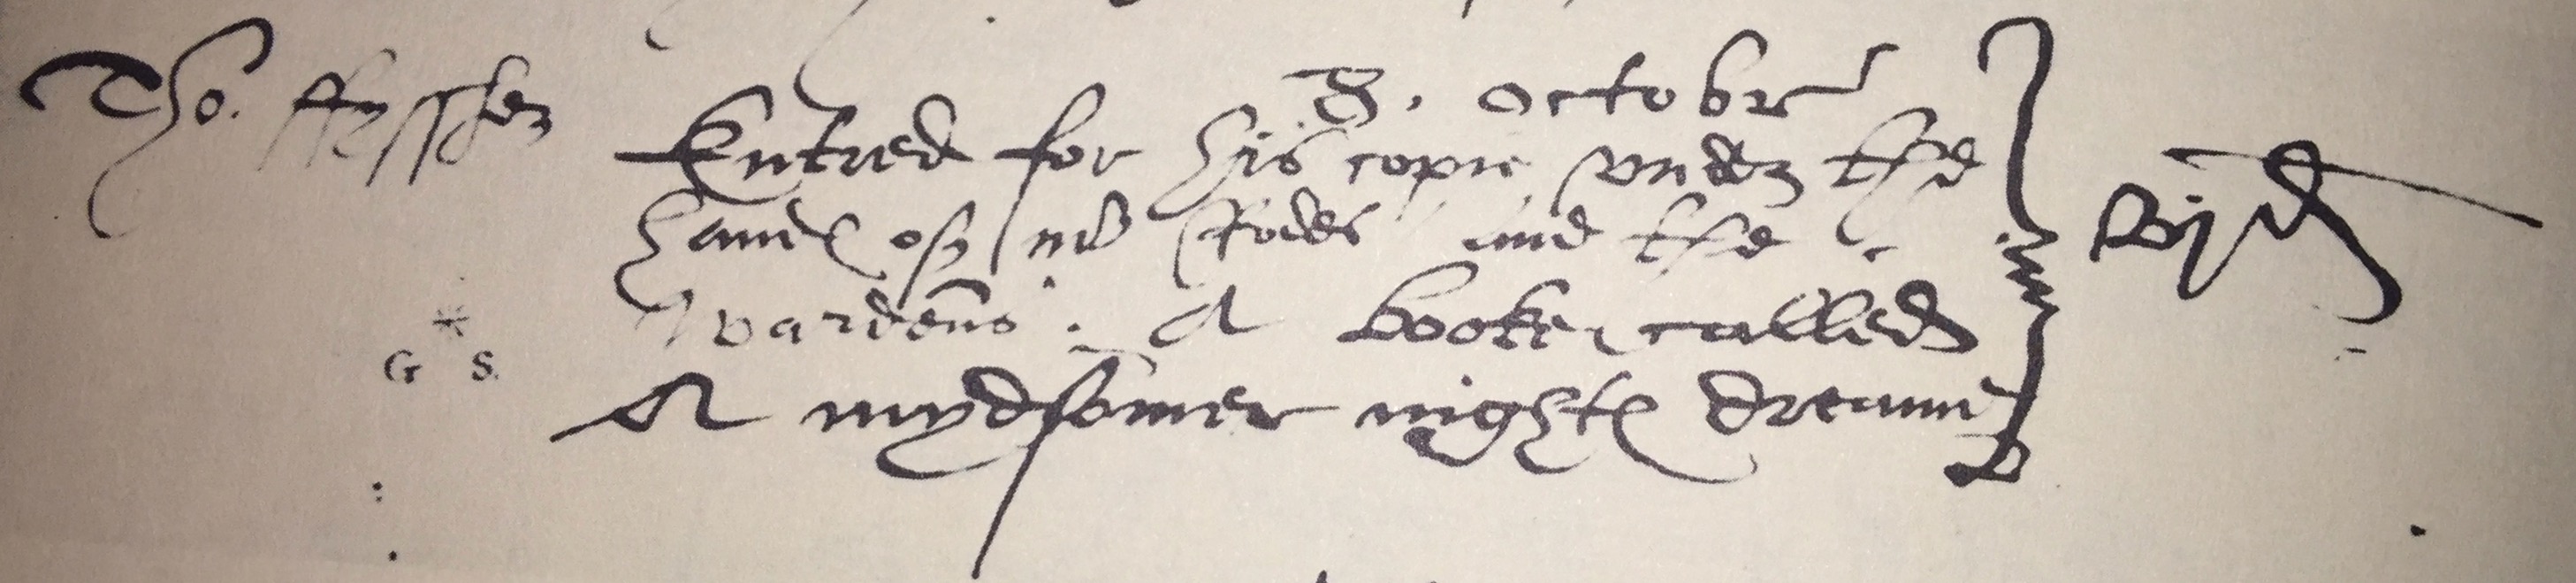 8. octobr
Tho. ffyssher Entred for his copie vnder the vjd
handes of mr Rodes and the
Wardens. A booke called
G S.
A mydsomer nightes dreame